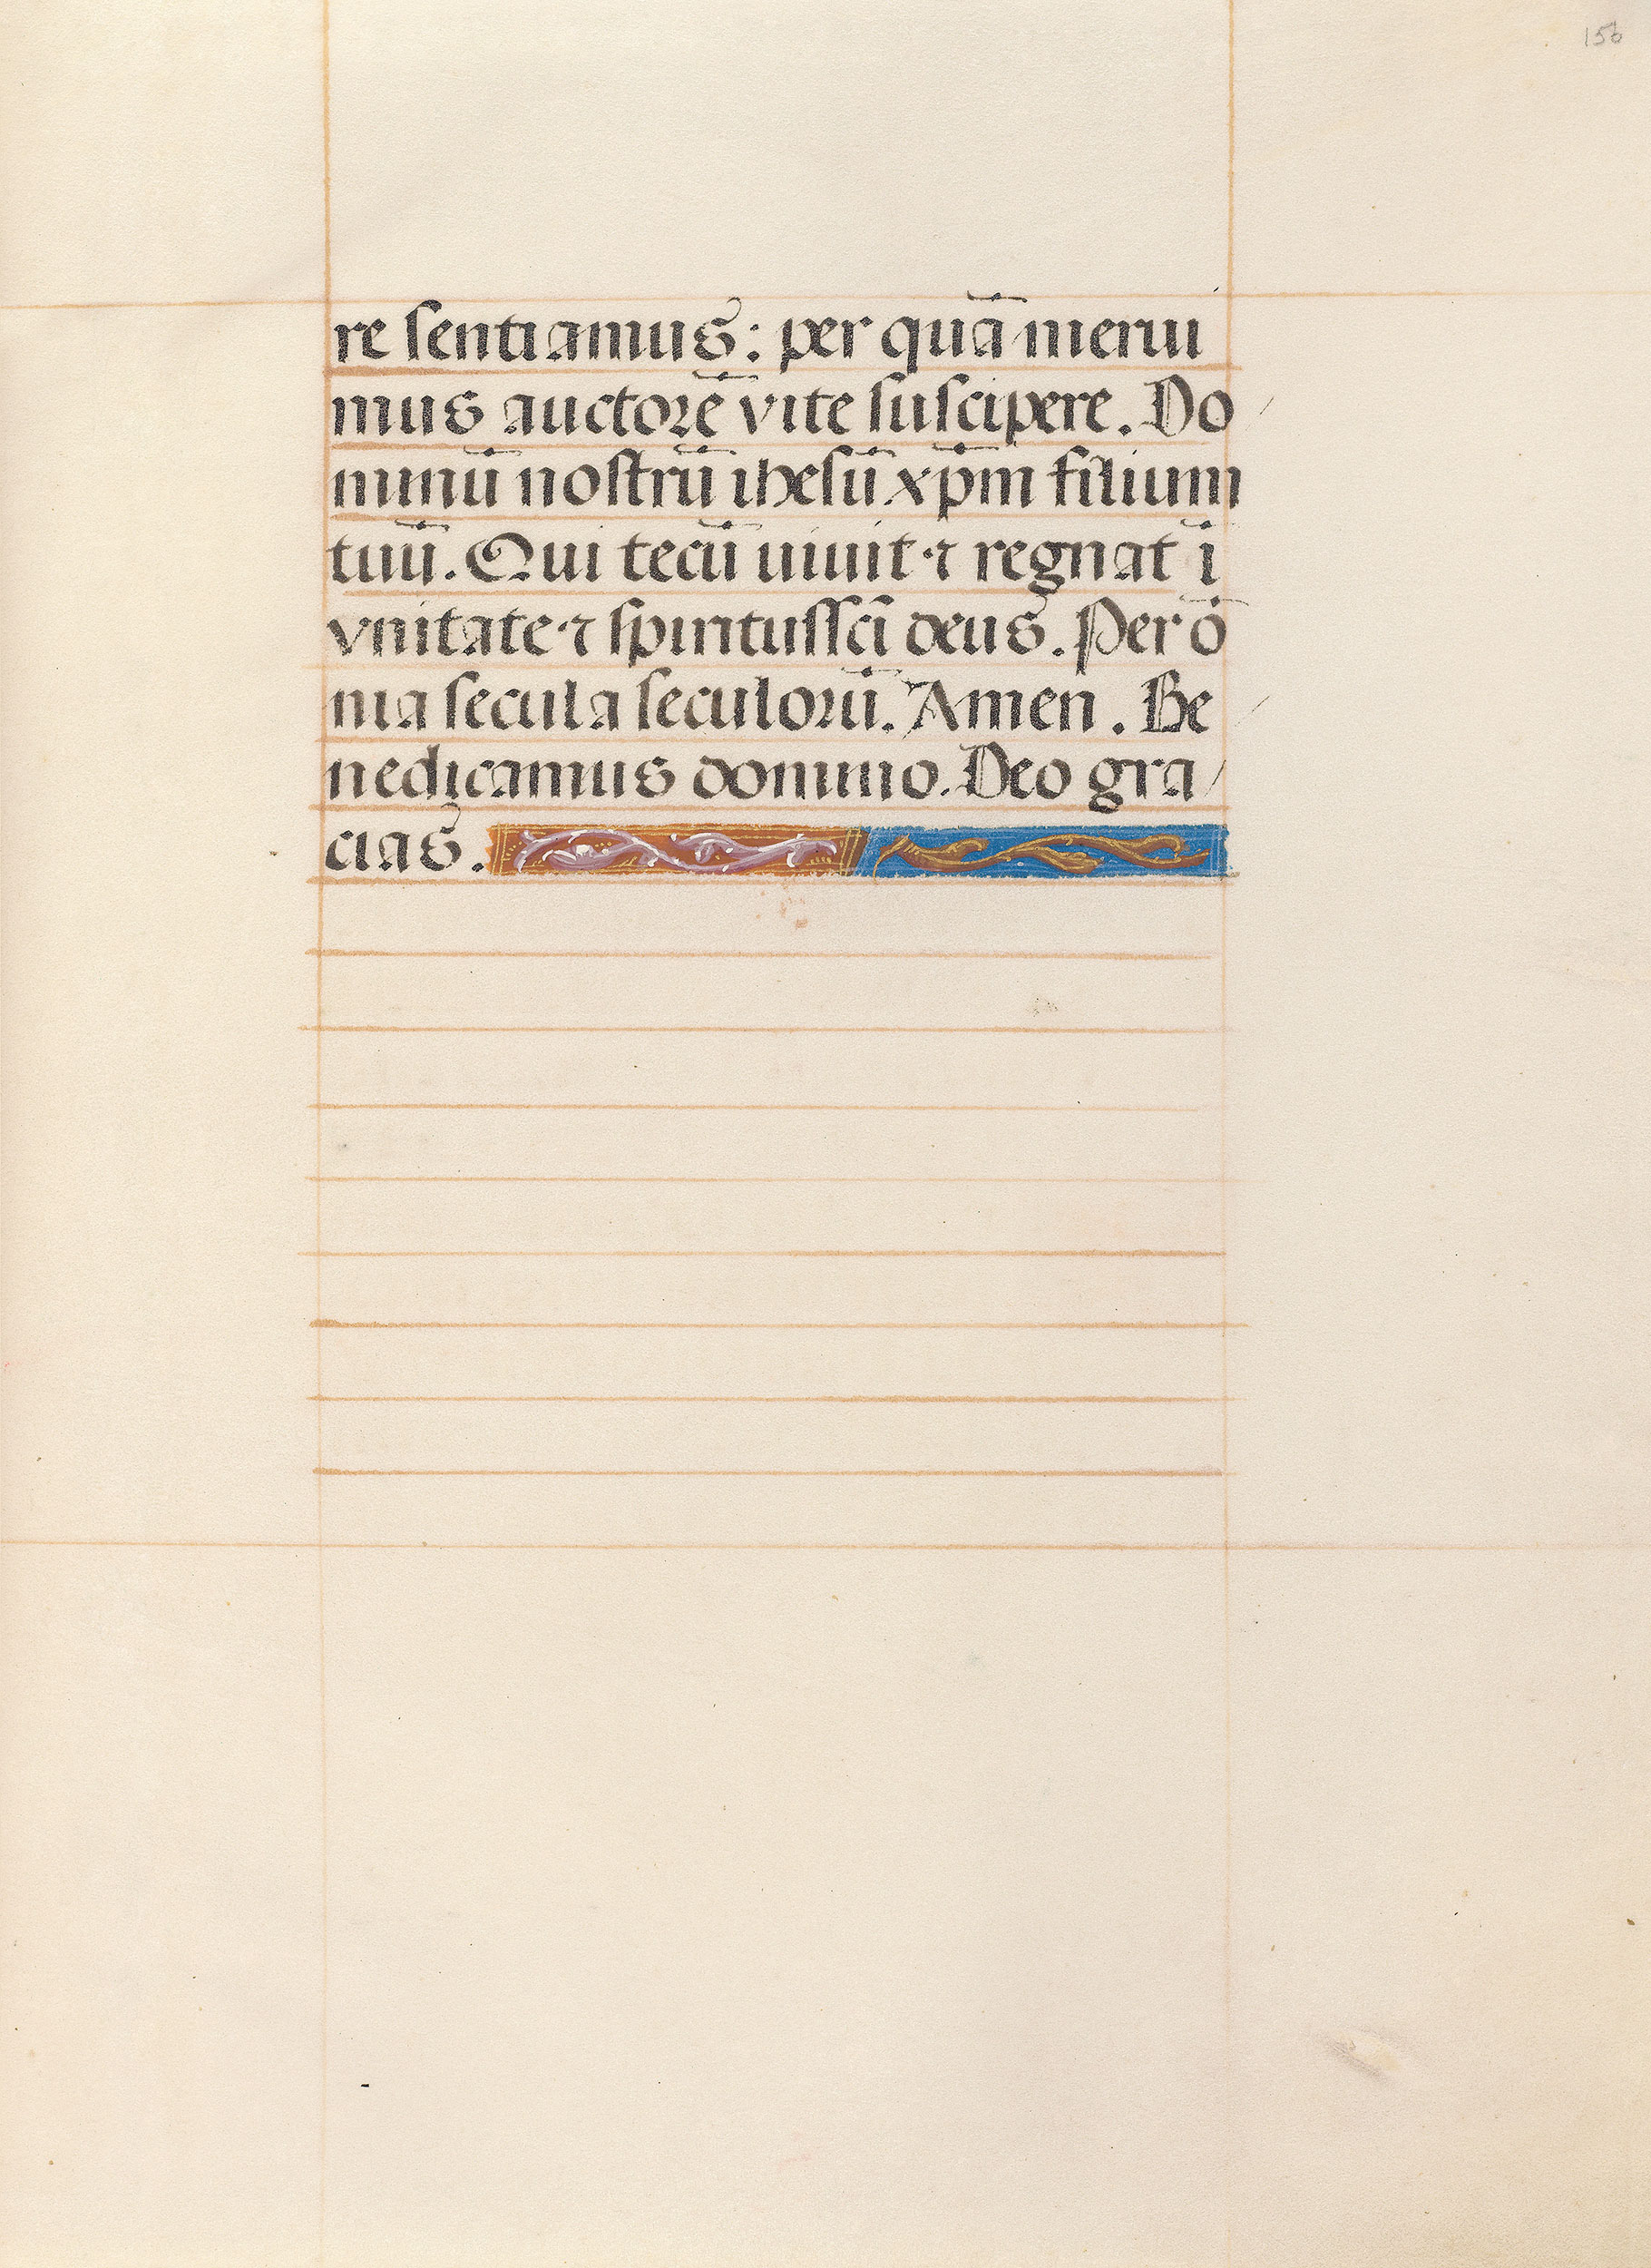 156
re sentiamus: per quā merui
mus auctorē vite suscipere. Do
minū nostrū ihesū xp̄m filium
tuū. Qui tecū uiuit ⁊ regnat ī
vnitate ⁊ spiritussc̄i deus. Per ō
nia secula seculorū. Amen. Be
nedicamus domino. Deo gra
cias.